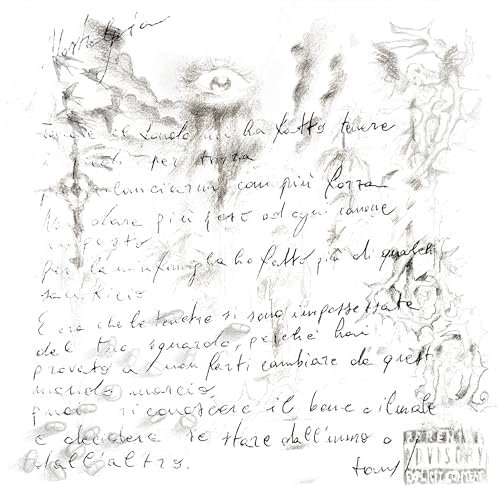 Nostalgia
il fondo mi ha fatto tenere
i piedi per terra
con più forza
dare più peso ad ogni canone
imposto
per la mia famiglia ho fatto più di qualche
sacrificio
E ora che le tenebre si sono impossessate
del tuo sguardo, perché hai
provato a non farti cambiare da quest
mondo marcio
puoi riconoscere il bene e il male
e decidere se stare dall'uno o
dall'altro.
PARENTAL
ADVISORY
EXPLICIT CONTENT